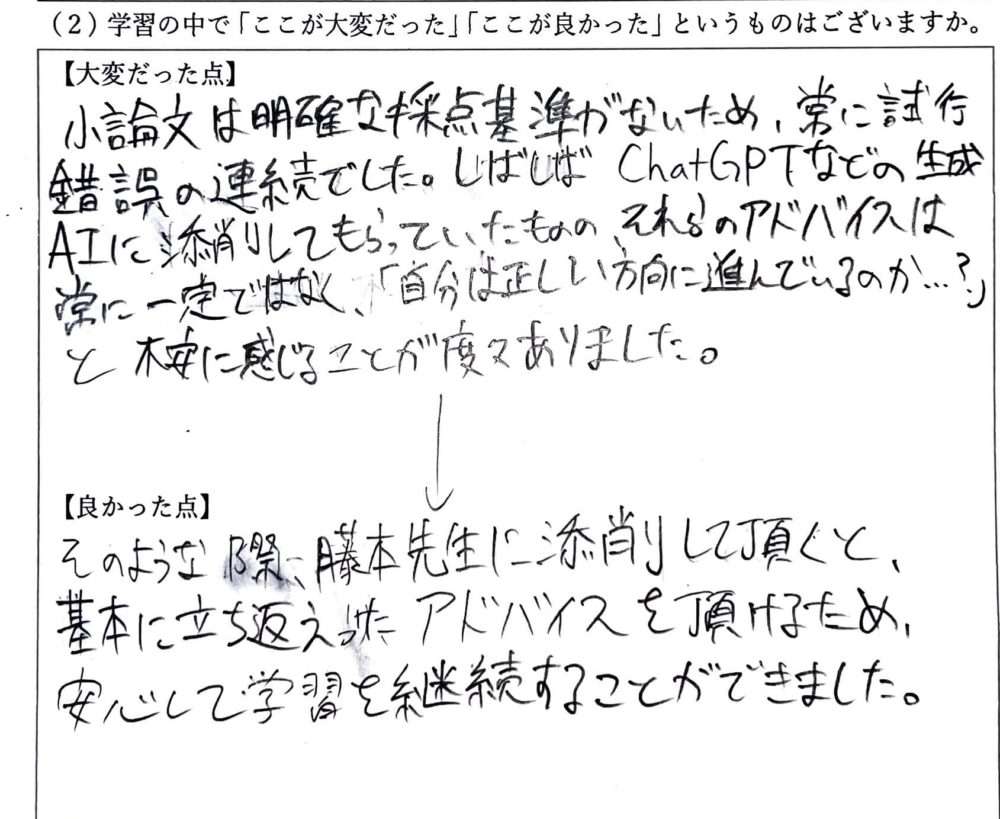 (2)学習の中で「ここが大変だった」「ここが良かった」というものはございますか。
【大変だった点】
小論文は明確な採点基準がないため、常に試行
錯誤の連続でした。しばしば ChatGPTなどの生成
AIに添削してもらっていたものの、それらのアドバイスは
常に一定ではなく、「自分は正しい方向に進んでいるのか…?」
と不安に感じることが度々ありました。
【良かった点】
そのような際、藤本先生に添削して頂くと、
基本に立ち返えったアドバイスを頂けるため、
安心して学習を継続することができました。